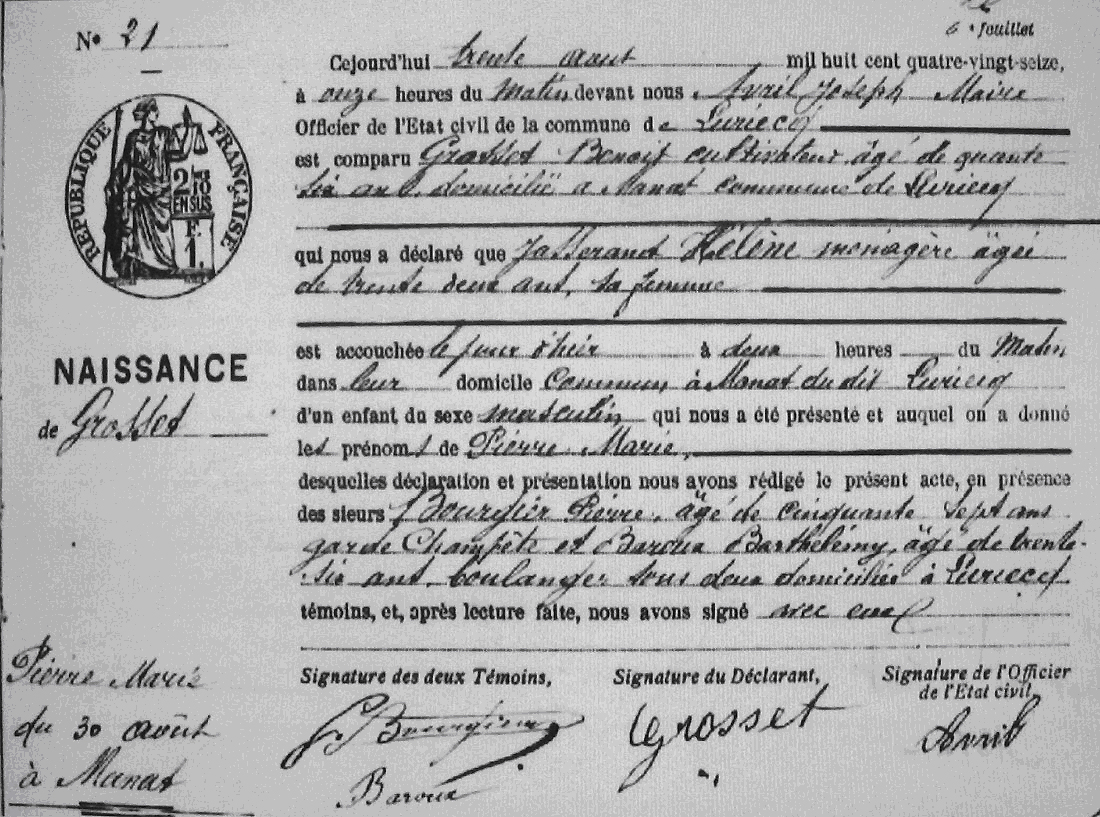 6e feuillet
No 21
Cejourd'hui trente aout mil huit cent quatre-vingt-seize,
à onze heures du Matin devant nous Avril Joseph Maire
Officier de l'Etat civil de la commune de Luriecq
est comparu Grosset Benoit cultivateur âgé de quarante
six ans domicilié a Manat commune de Luriecq
qui nous a déclaré que Jasserand Hélène menagère âgée
de trente deux ans, sa femme
est accouchée le jour d'hier à deux heures du Matin
dans leur domicile Commun, à Manat du dit Luriecq
d'un enfant du sexe masculin qui nous a été présenté et auquel on a donné
les prénoms de Pierre Marie,
desquelles déclaration et présentation nous avons rédigé le présent acte, en présence
des sieurs Bourgier Pierre, âgé de cinquante sept ans
garde Champête et Baroux Barthélémy, âgé de trente-
six ans, boulanger tous deux domiciliés à Luriecq
témoins, et, après lecture faite, nous avons signé avec eux
REPUBLIQUE FRANÇAISE
2/10
EN SUS
F.
1.
NAISSANCE
de Grosset
Pierre Marie
du 30 août
à Manat
Signature des deux Témoins,
Bourgier
Baroux
Signature du Déclarant,
Grosset
Signature de l'Officier
de l'Etat civil,
Avril